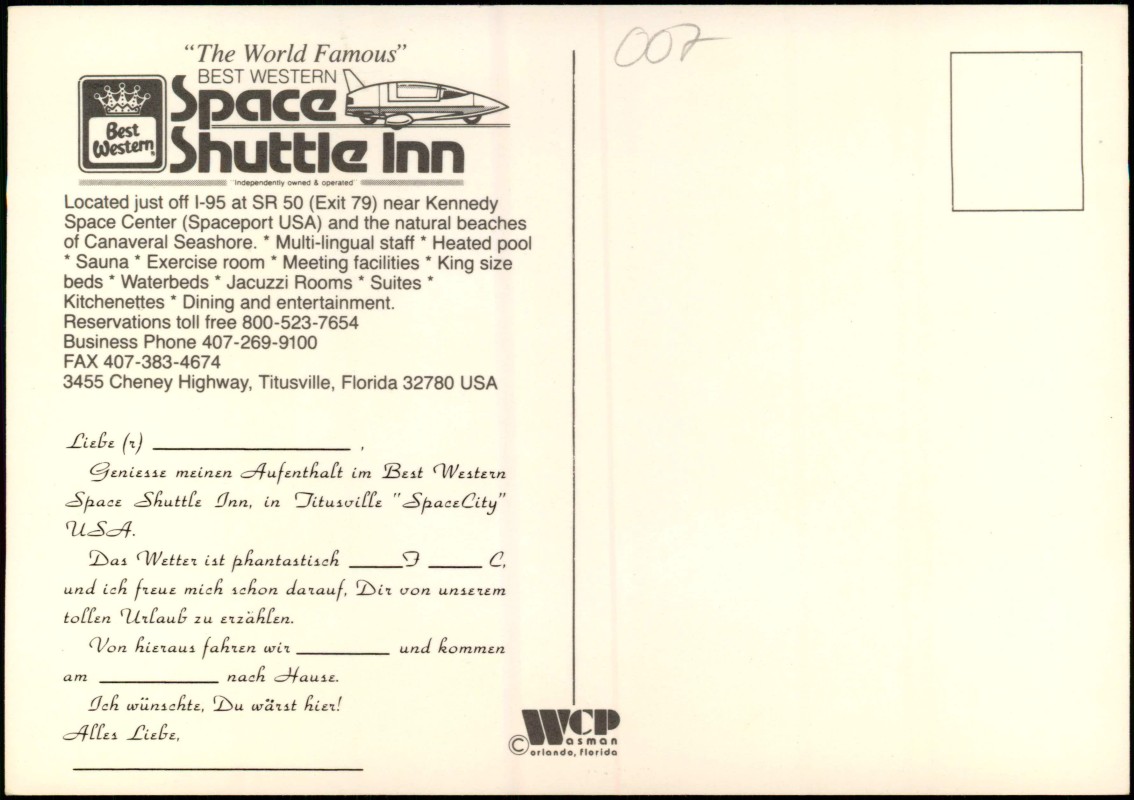 "The World Famous"
BEST WESTERN
Space
Shuttle Inn
Best
Western
"Independently owned & operated"
Located just off I-95 at SR 50 (Exit 79) near Kennedy
Space Center (Spaceport USA) and the natural beaches
of Canaveral Seashore. * Multi-lingual staff * Heated pool
* Sauna * Exercise room * Meeting facilities * King size
beds * Waterbeds * Jacuzzi Rooms * Suites *
Kitchenettes * Dining and entertainment.
Reservations toll free 800-523-7654
Business Phone 407-269-9100
FAX 407-383-4674
3455 Cheney Highway, Titusville, Florida 32780 USA
Liebe (r) ____________ ,
Geniesse meinen Aufenthalt im Best Western
Space Shuttle Inn, in Titusville "SpaceCity"
USA.
Das Wetter ist phantastisch _____F _____ C,
und ich freue mich schon darauf, Dir von unserem
tollen Urlaub zu erzählen.
Von hieraus fahren wir ________ und kommen
am __________ nach Hause.
Ich wünschte, Du wärst hier!
Alles Liebe,
007
WCP
Wasman
© orlando, florida